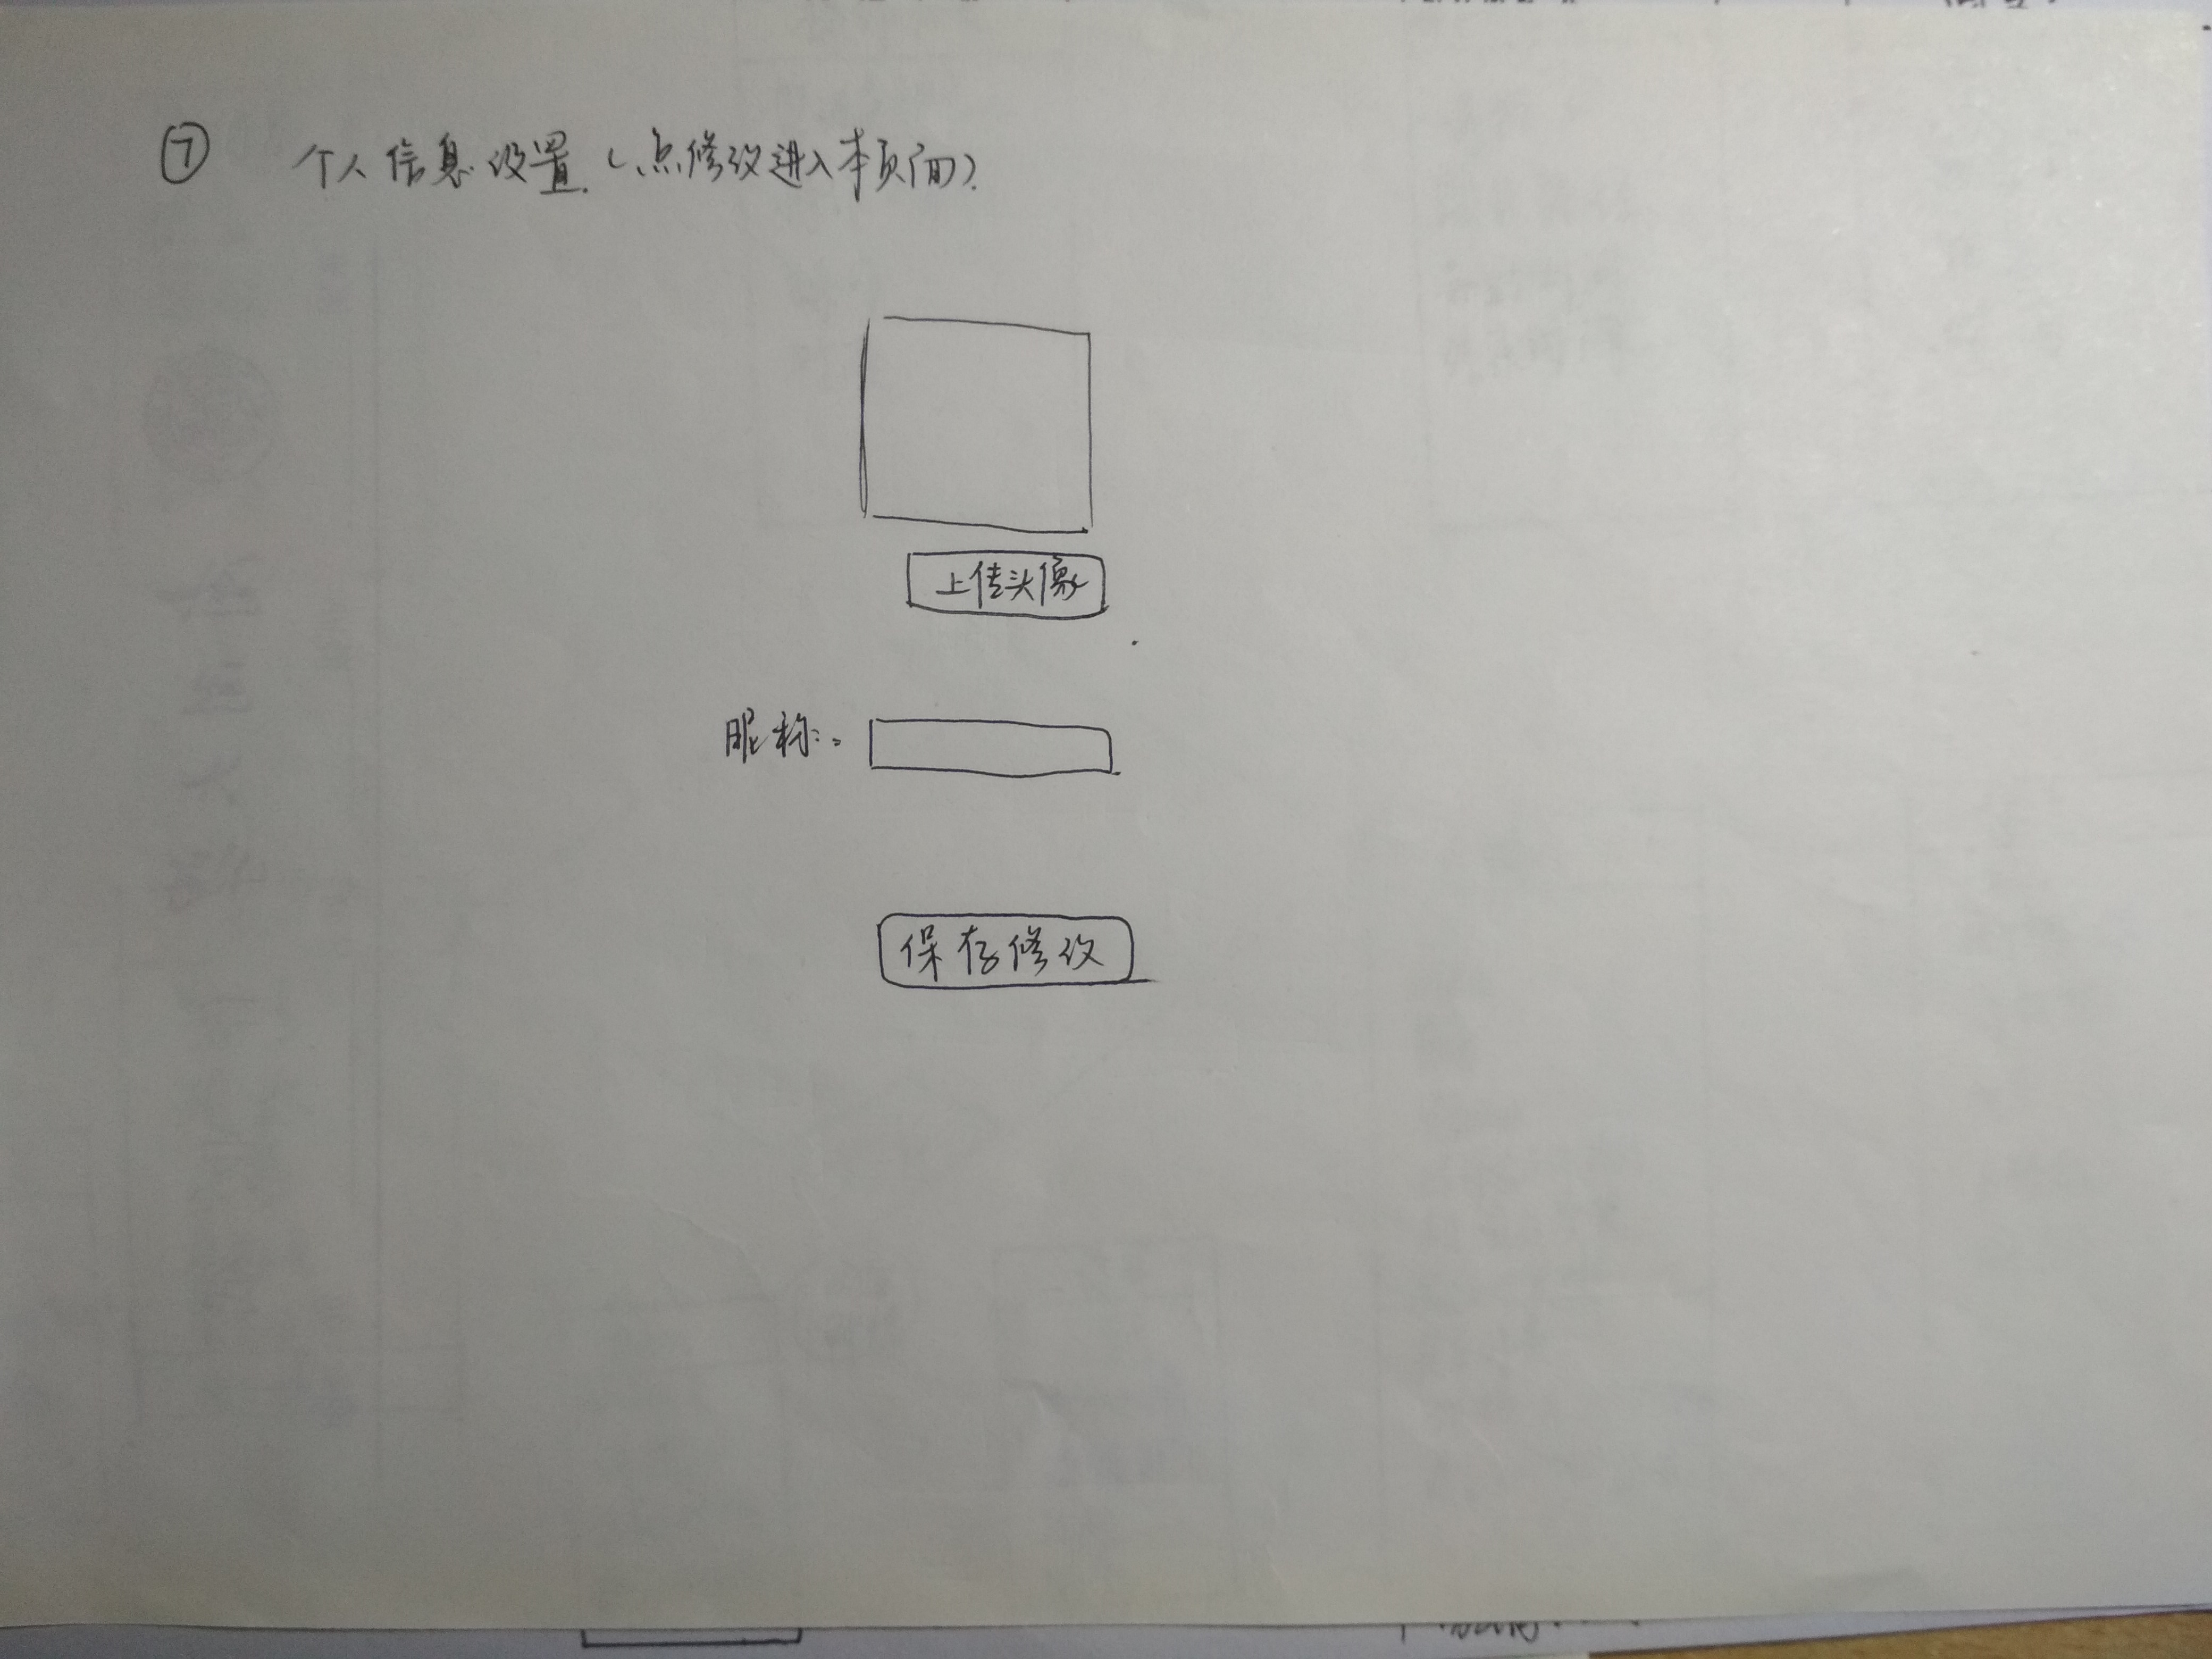 ⑦ 个人信息设置.（点修改进入本页面）.
上传头像
昵称:
保存修改